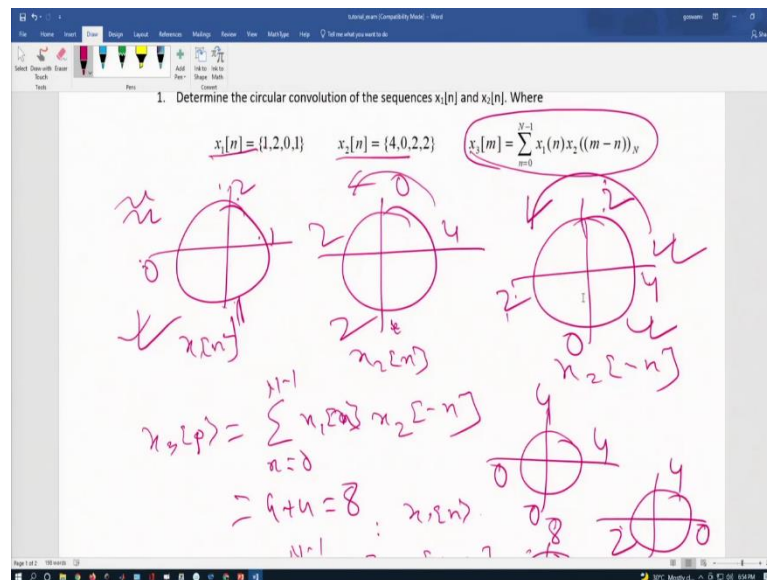 tutorial_exam [Compatibility Mode] - Word
goswami
File Home Insert Draw Design Layout References Mailings Review View MathType Help Tell me what you want to do
Select Draw with Touch Eraser Add Pen Ink to Shape Ink to Math
Tools Pens Convert
1. Determine the circular convolution of the sequences x₁[n] and x₂[n]. Where
x₁[n] = {1,2,0,1} x₂[n] = {4,0,2,2} x₃[m] = Σ_{n=0}^{N-1} x₁(n)x₂((m−n))_N
2 0 2
0 1 2 4 2 4
1 2 0
x[n] x₂[n] x₂[-n]
x₃[0] = Σ_{n=0}^{N-1} x₁[n] x₂[-n]
4
0 4
= 4+4 = 8 x₁[n] 0 4
8 2 0
N-1
Page 1 of 2 193 words
30°C Mostly cl... 6:54 PM